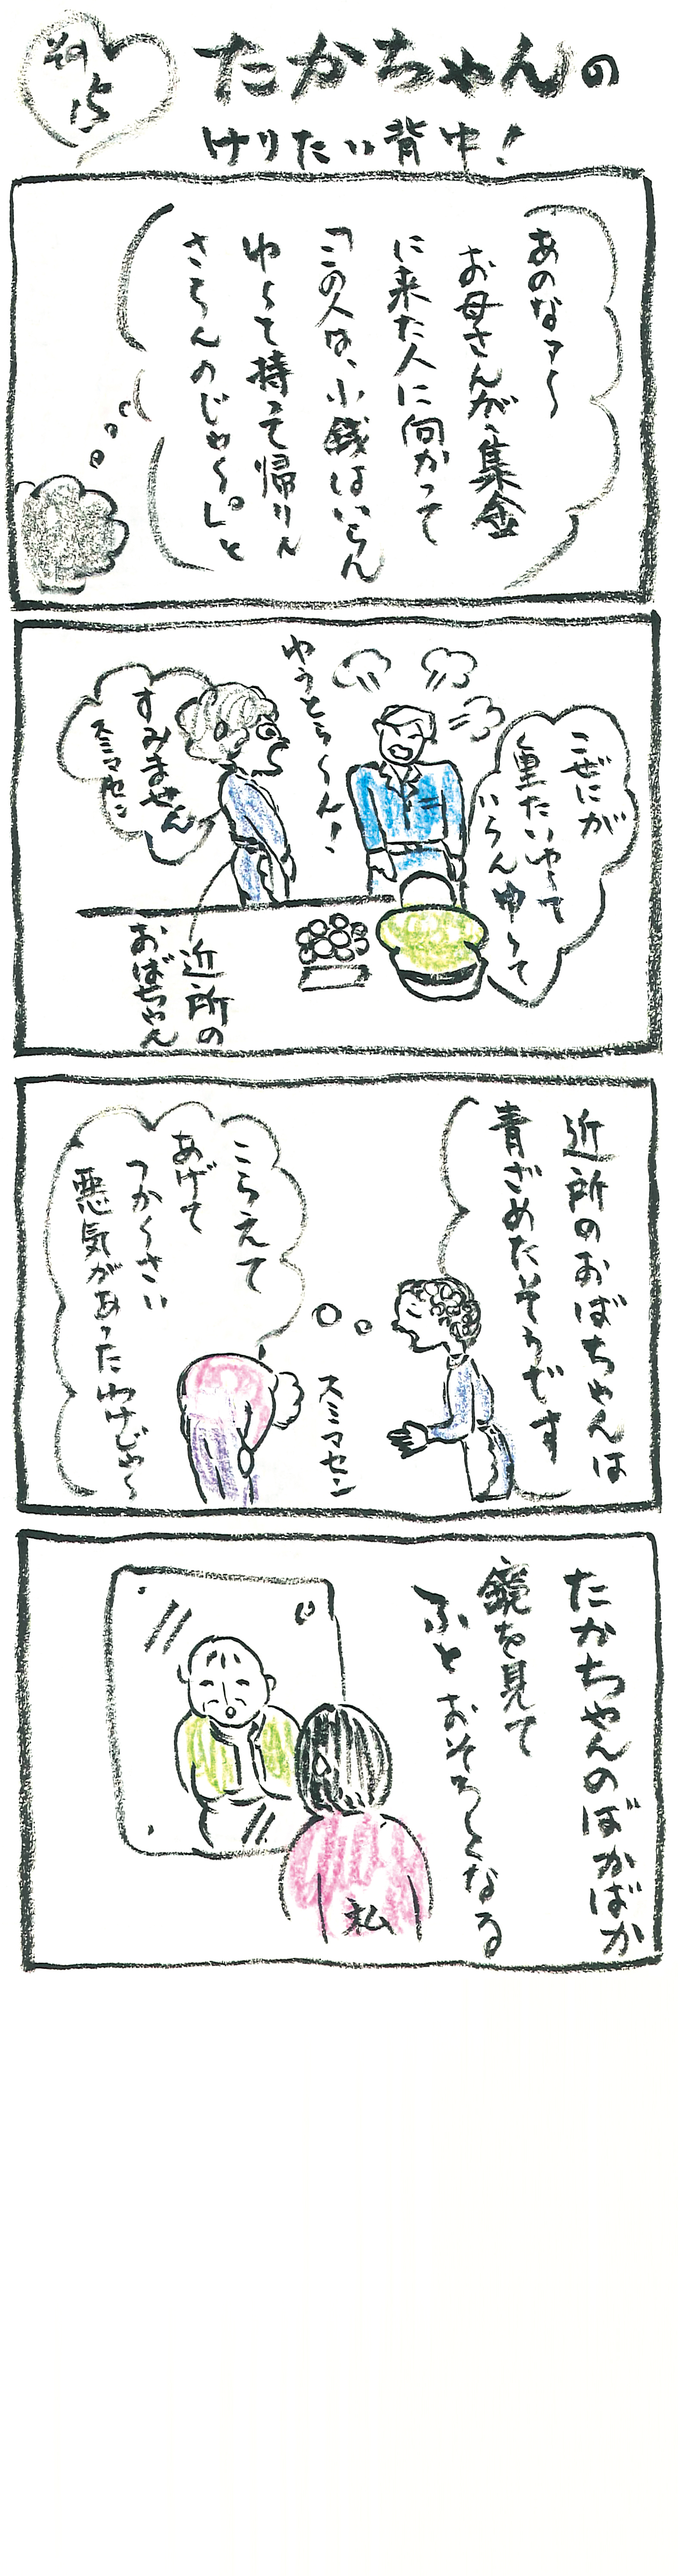 その15
たかちゃんの
けりたい背中!
あのなァ〜
お母さんが、集金
に来た人に向かって
「この人は、小銭はいらん
ゆうて持って帰りん
さらんのじゃ〜。」と
こぜにが
重たいゆうて
いらんゆうて
ゆうとらーん!
すみません
スミマセン
近所の
おばちゃん
近所のおばちゃんは
青ざめたそうです
スミマセン
こらえて
あげて
つかぁさい
悪気があったわけじゃ〜
たかちゃんのばかばか
鏡を見て
ふと おそろしくなる
私